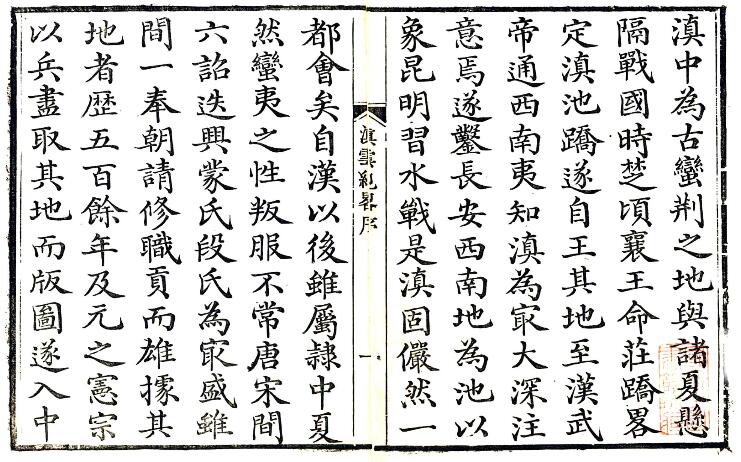 滇中為古蠻荆之地與諸夏懸
隔戰國時楚頃襄王命莊蹻畧
定滇池蹻遂自王其地至漢武
帝通西南夷知滇為㝡大深注
意焉遂鑿長安西南地為池以
象昆明習水戰是滇固儼然一
滇雲紀畧序
一
都會矣自漢以後雖屬隷中夏
然蠻夷之性叛服不常唐宋間
六詔迭興蒙氏段氏為㝡盛雖
間一奉朝請修職貢而雄據其
地者歷五百餘年及元之憲宗
以兵盡取其地而版圖遂入中